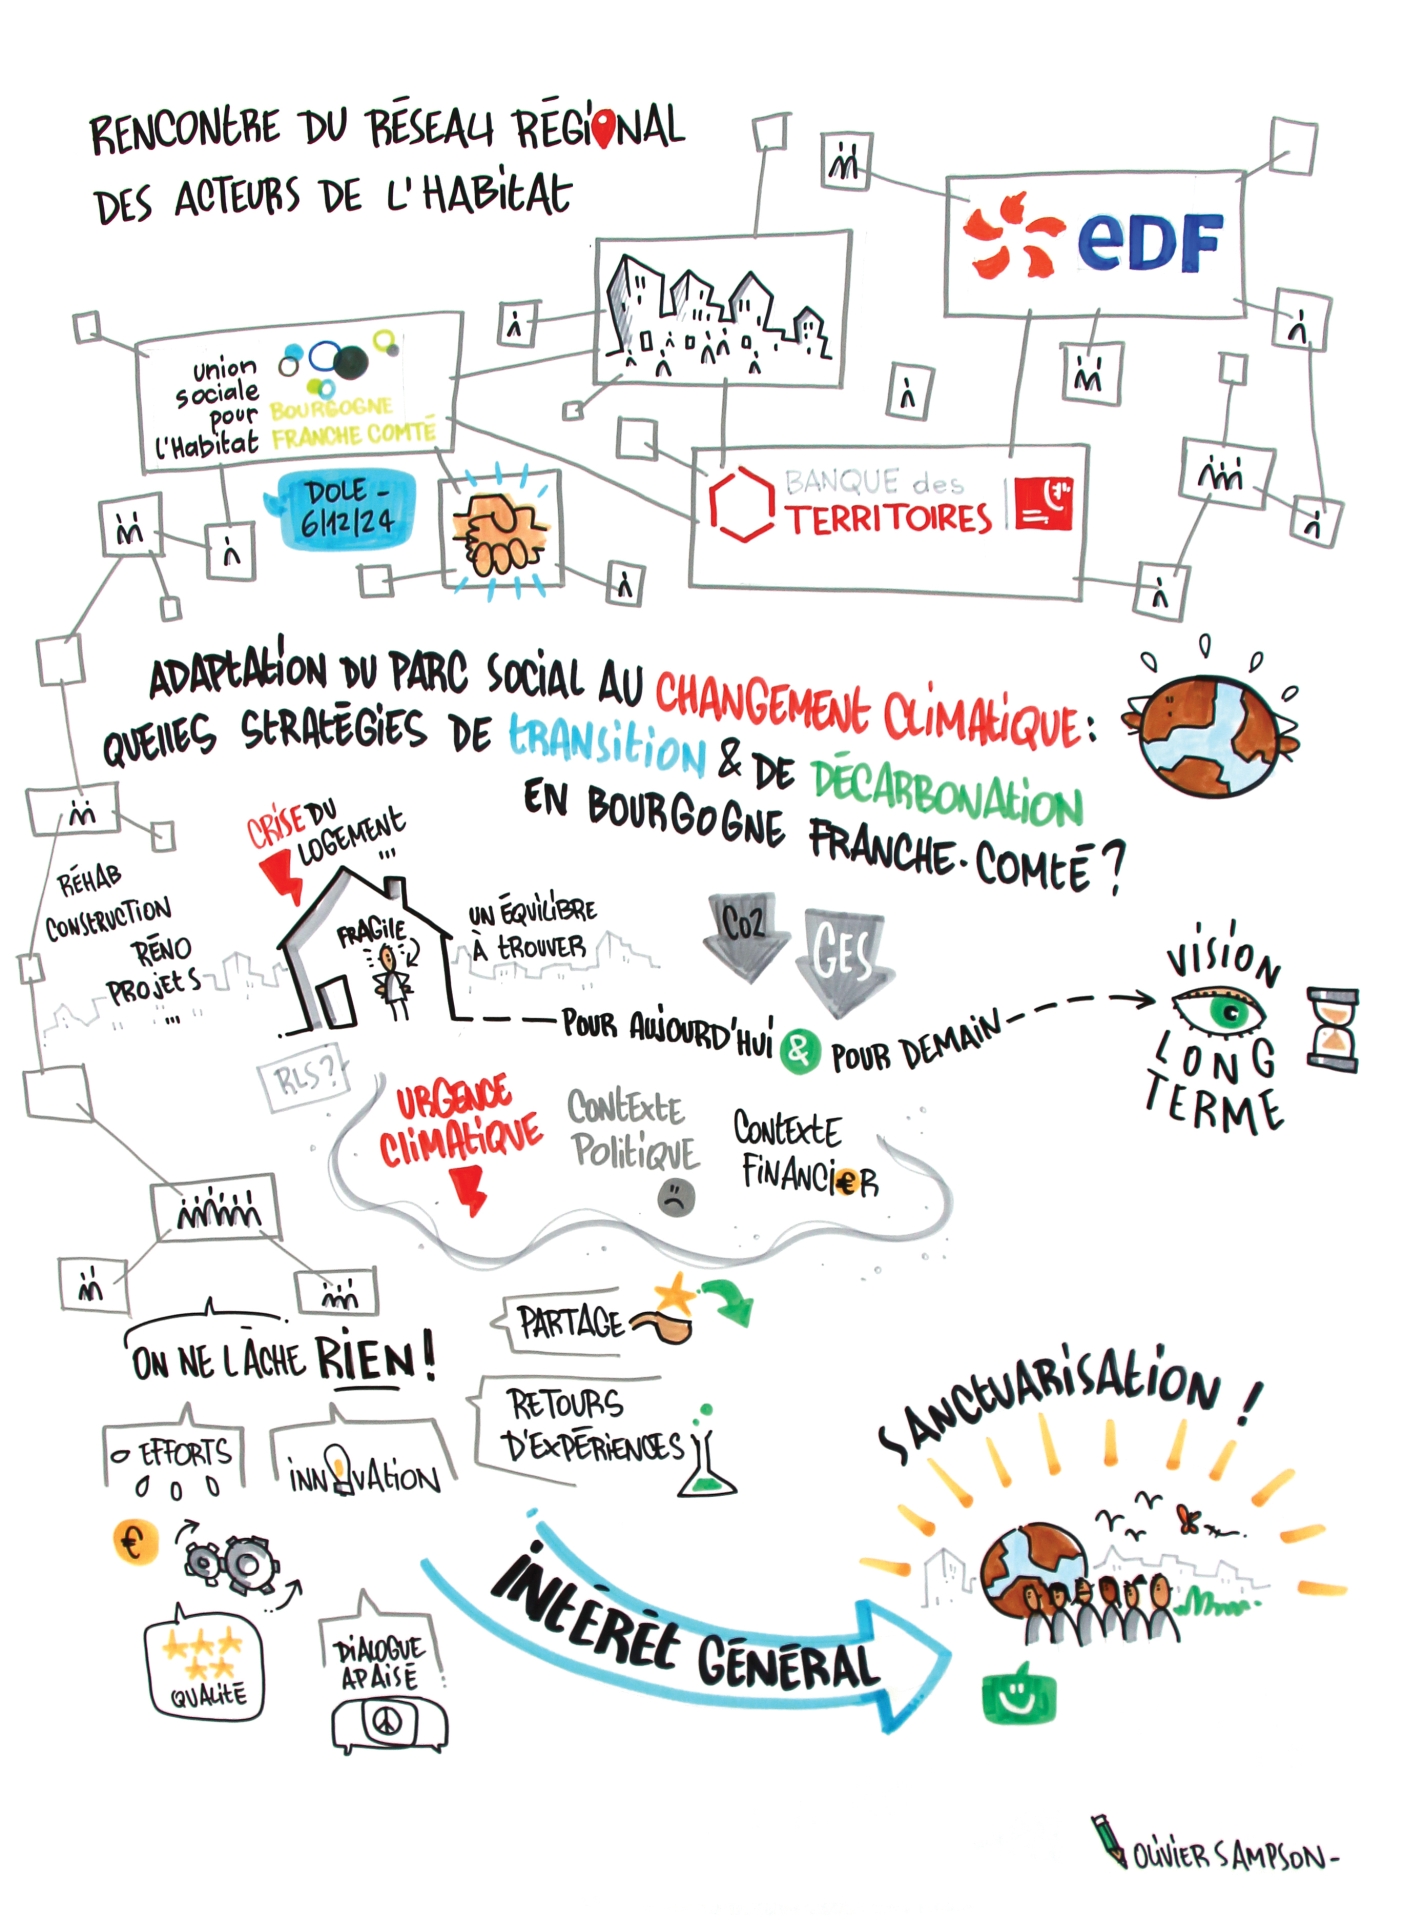 RENCONTRE DU RÉSEAU RÉGIONAL
DES ACTEURS DE L'HABITAT
eDF
union
sociale
pour
l'Habitat
BOURGOGNE
FRANCHE COMTÉ
DOLE -
6/12/24
BANQUE des
TERRITOIRES
ADAPTATION DU PARC SOCIAL AU CHANGEMENT CLIMATIQUE :
QUELLES STRATÉGIES DE TRANSITION & DE DÉCARBONATION
EN BOURGOGNE FRANCHE-COMTÉ ?
CRISE DU
LOGEMENT
...
RÉHAB
CONSTRUCTION
RÉNO
PROJETS
...
FRAGILE
UN ÉQUILIBRE
À TROUVER
CO2
GES
POUR AUJOURD'HUI & POUR DEMAIN
VISION
LONG
TERME
RLS ?
URGENCE
CLIMATIQUE
CONTEXTE
POLITIQUE
CONTEXTE
FINANCI€R
ON NE LÂCHE RIEN !
PARTAGE
RETOURS
D'EXPÉRIENCES
EFFORTS
INNOVATION
€
QUALITÉ
DIALOGUE
APAISÉ
INTÉRÊT GÉNÉRAL
SANCTUARISATION !
OLIVIER SAMPSON -